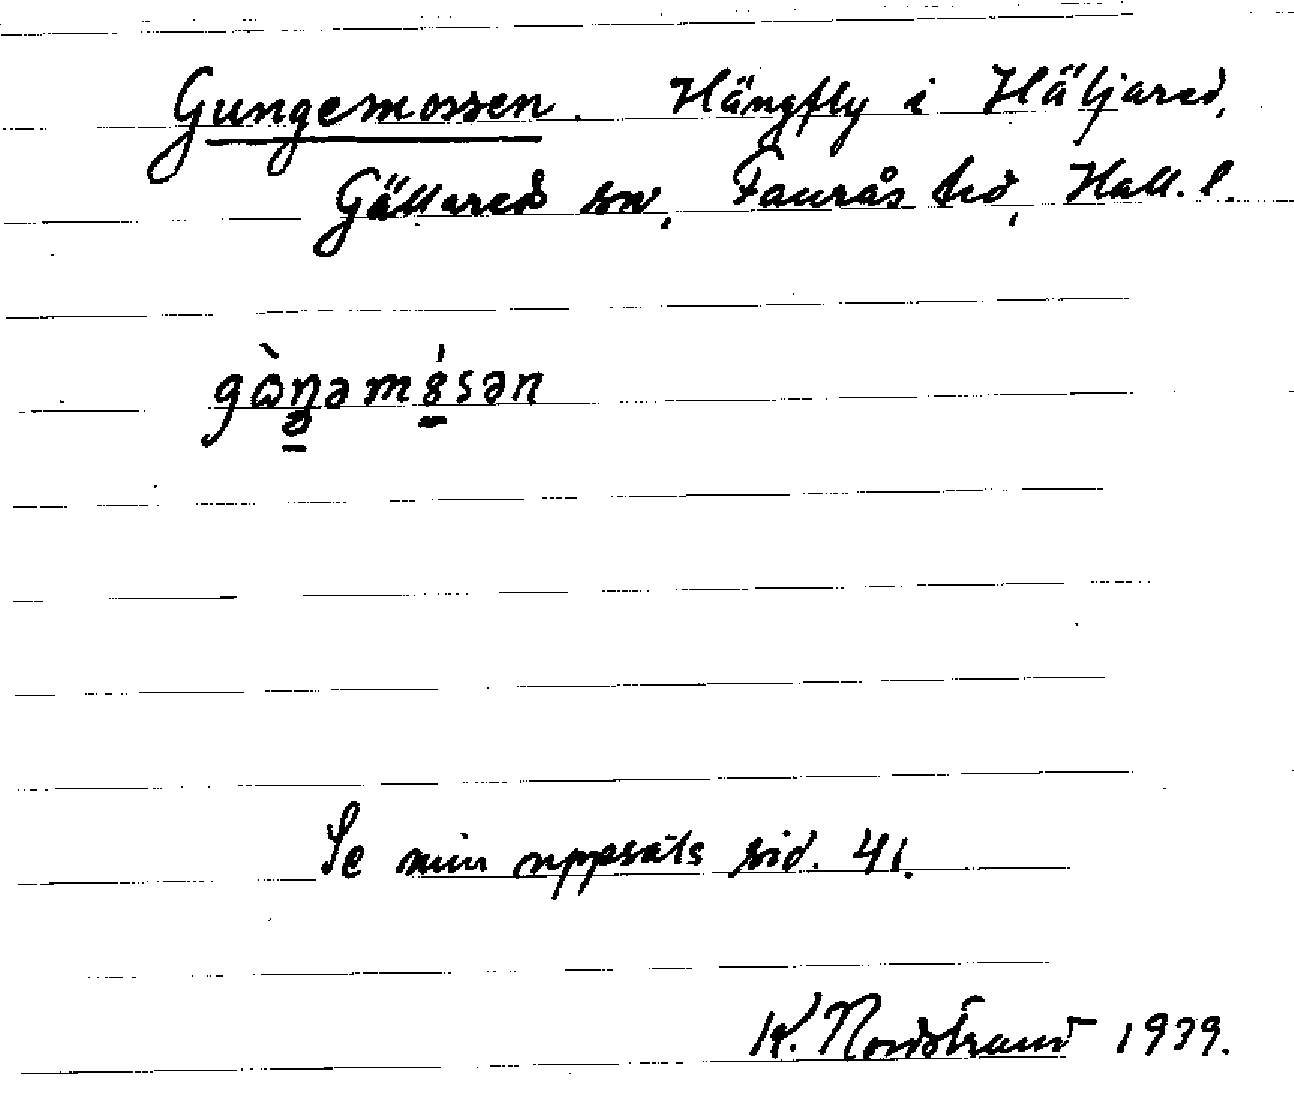 Gungemossen. Hängfly i Häljared,
Gällared sn, Faurås hd, Hall. l.
gὼŋəm8́sən
Se min uppsats sid. 41.
K. Nordstrand 1939.